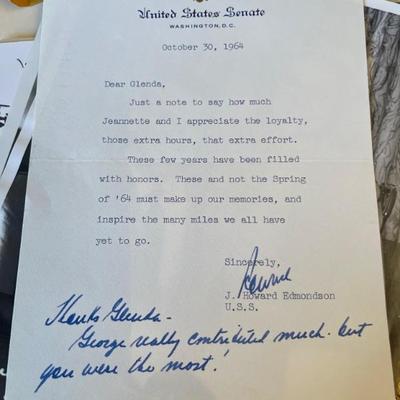 United States Senate
WASHINGTON, D.C.
October 30, 1964
Dear Glenda,
Just a note to say how much
Jeannette and I appreciate the loyalty,
those extra hours, that extra effort.
These few years have been filled
with honors. These and not the Spring
of '64 must make up our memories, and
inspire the many miles we all have
yet to go.
Sincerely,
J. Howard Edmondson
U.S.S.
Thanks Glenda-
George really contributed much- but
you were the most!